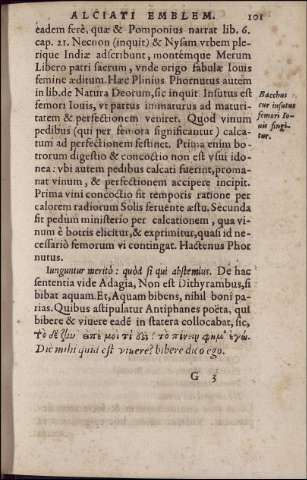 ALCIATI EMBLEM. 101
eadem ferè, quæ & Pomponius narrat lib. 6.
cap. 21. Necnon (inquit) & Nysam vrbem ple-
rique Indiæ adscribunt, montémque Merum
Libero patri sacrum, vnde origo fabulæ Iouis
femine æditum. Hæc Plinius. Phornutus autem
in lib. de Natura Deorum, sic inquit Insutus est
femori Iouis, vt partus immaturus ad maturi-
tatem & perfectionem veniret. Quod vinum
pedibus (qui per femora significantur) calca-
tum ad perfectionem festinet. Prima enim bo-
trorum digestio & concoctio non est vsui ido-
nea: vbi autem pedibus calcati fuerint, proma-
nat vinum, & perfectionem accipere incipit.
Prima vini concoctio fit temporis ratione per
calorem radiorum Solis feruēte æstu. Secunda
fit pedum ministerio per calcationem, qua vi-
num è botris elicitur, & exprimitur, quasi id ne-
cessariò femorum vi contingat. Hactenus Phor
nutus.
Bacchus
cur insutus
femori Io-
uis fingi-
tur.
Iunguntur meritò: quòd si qui abstemius. De hac
sententia vide Adagia, Non est Dithyrambus, si
bibat aquam. Et, Aquam bibens, nihil boni pa-
rias. Quibus astipulatur Antiphanes poëta, qui
bibere & viuere eadē in statera collocabat, sic,
τὸ δὲ ζῆν εἰπέ μοι τί ἐστι; τὸ πίνειν φημ' ἐγώ.
Dic mihi quid est viuere? bibere dico ego.
G 3